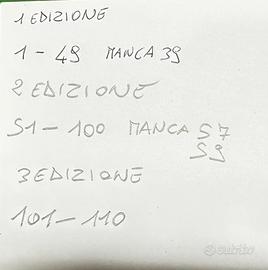 1 EDIZIONE
1 - 49 MANCA 39
2 EDIZIONE
51 - 100 MANCA 57
59
3 EDIZIONE
101 - 110
subito